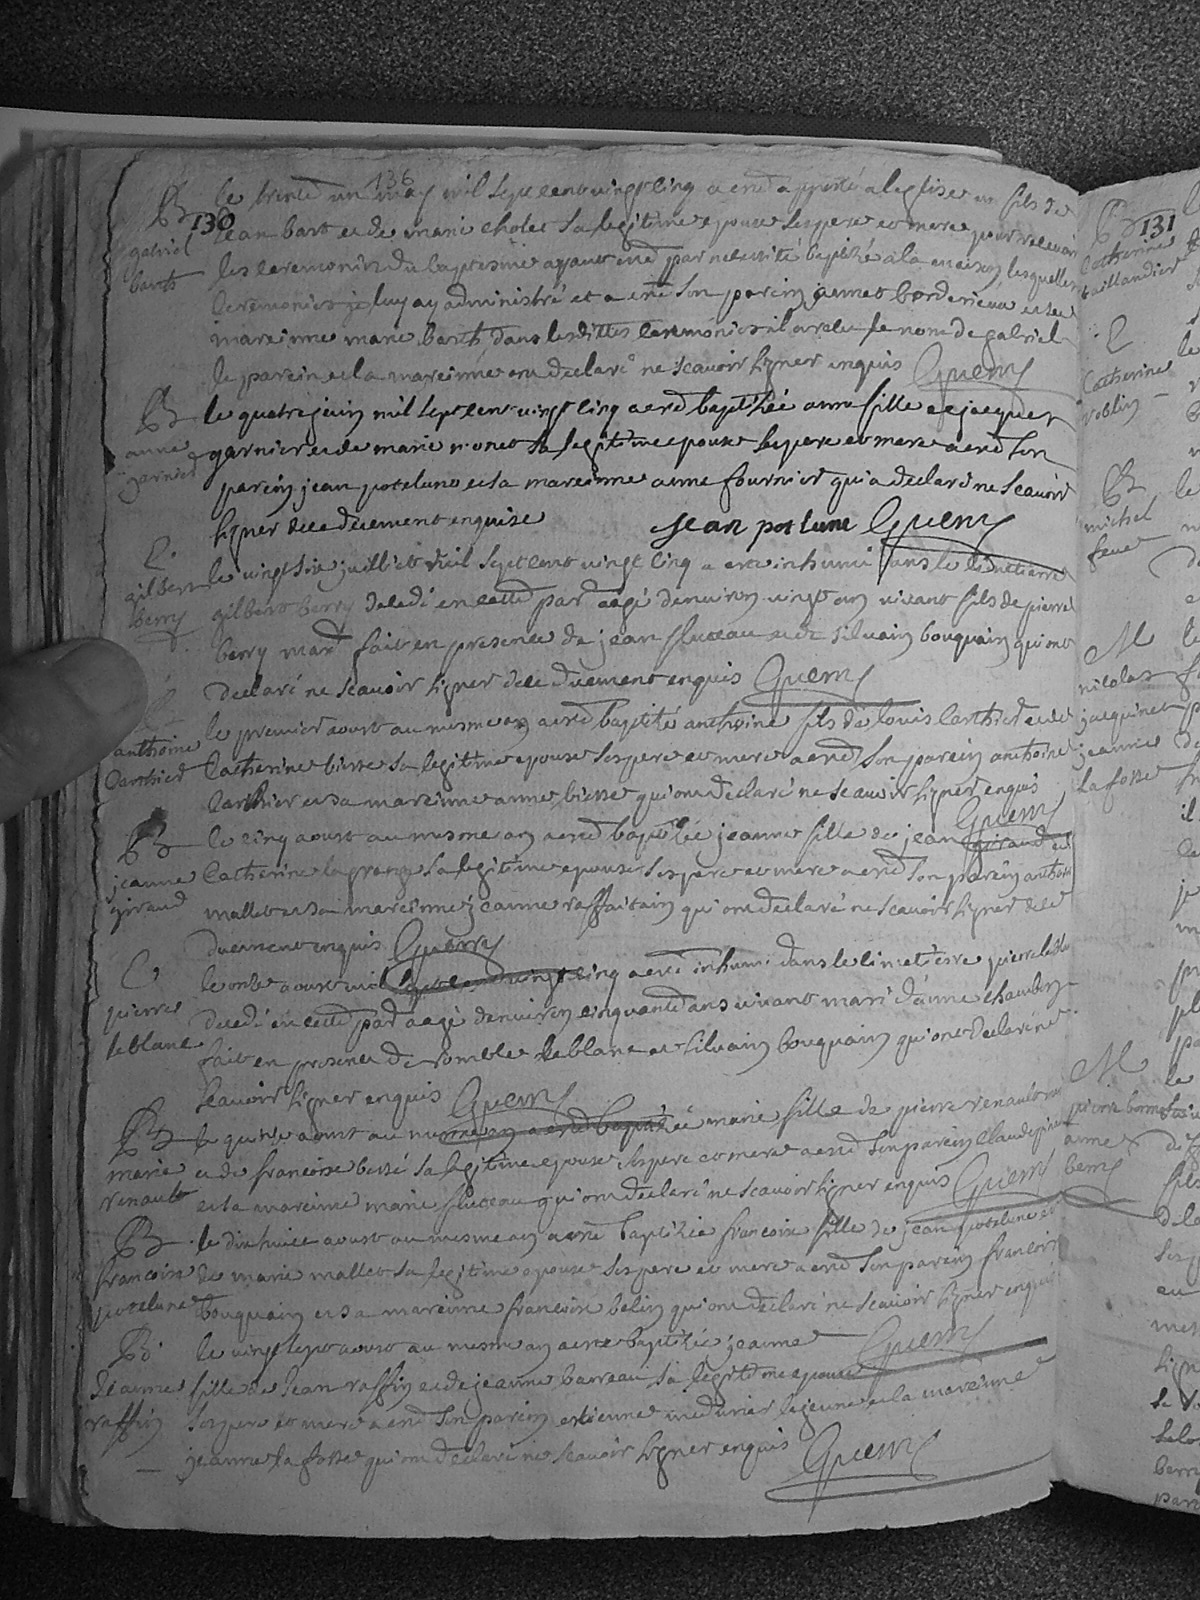 136
B 130
gabriel
barth
le trente un may mil sept cent vingt cinq a eté apporté a leglise un fils de
Jean bart et de marie cholet sa legitime epouse ses pere et mere pour recevoir
les ceremonies du baptesme ayant eté par necessité baptisé a la maison lesquelles
ceremonies je luy ay administré et a eté son parein annet borderieux et sa
mareinne marie barth, dans lesdittes ceremonies il a receu le nom de gabriel
le parein et la mareinne ont declaré ne scavoir signer enquis Guerry
B
anne
garnier
le quatre juin mil sept cent vingt cinq a eté baptisée anne fille de jacques
garnier et de marie monet sa legitime epouse ses pere et mere a eté son
parein jean potelune et sa mareinne anne fournier qui a declaré ne scavoir
signer de ce duement enquise jean pot lune Guerry
E
gilbert
berry
le vingt six juilliet mil sept cent vingt cinq a eté inhumé dans le cimetierre
gilbert berry decedé en cette par agé denviron vingt an vivant fils de pierre
berry mar fait en presence de jean fluteau et de silvain bouquain qui ont
declaré ne scavoir signer de ce duement enquis Guerry
anthoine
Carthier
le premier aoust au mesme an a eté baptisé anthoine fils de louis Carthier et de
Catherine bisse sa legitime epouse ses pere et mere a eté son parein anthoine
Carthier et sa mareinne anne bisse qui ont declaré ne scavoir signer enquis
Guerry
B
jeanne
giraud
le cinq aoust au mesme an a eté baptisée jeanne fille de jean giraud et
Catherine lagrange sa legitime epouse ses pere et mere a eté son parein anthoine
mallet et sa mareinne jeanne raffaitain qui ont declaré ne scavoir signer de ce
duement enquis Guerry
E
pierre
leblanc
le onze aoust mil sept cent vingt cinq a eté inhumé dans le cimetierre pierre leblanc
decedé en cette par agé denviron cinquante ans vivant mari d'anne
fait en presence de romble leblanc et silvain bouquain qui ont declaré ne
scavoir signer enquis Guerry
B
marie
renault
le quinze aoust au mesme an a eté baptisée marie fille de pierre renault
et de francoise bessé sa legitime epouse ses pere et mere a eté son parein Claude
et sa mareinne marie fluteau qui ont declaré ne scavoir signer enquis Guerry
B
francoise
potelune
le dix huict aoust au mesme an a eté baptisée francoise fille de jean potelune et
de marie mallet sa legitime epouse ses pere et mere a eté son parein francois
bouquain et sa mareinne francoise belin qui ont declaré ne scavoir signer enquis
Guerry
B
Jeanne
raffin
le vingt sept aoust au mesme an a eté baptisée jeanne
fille de Jean raffin et de jeanne barreau sa legitime epouse
ses pere et mere a eté son parein estienne medunier lejeune et la mareinne
jeanne lafosse qui ont declaré ne scavoir signer enquis Guerry
B 131
Catherine
taillandier
E
Catherine
roblin
B
michel
feuet
M
nicolas
jacquinet
jeanne
lafosse
M
pierre
anne
berry